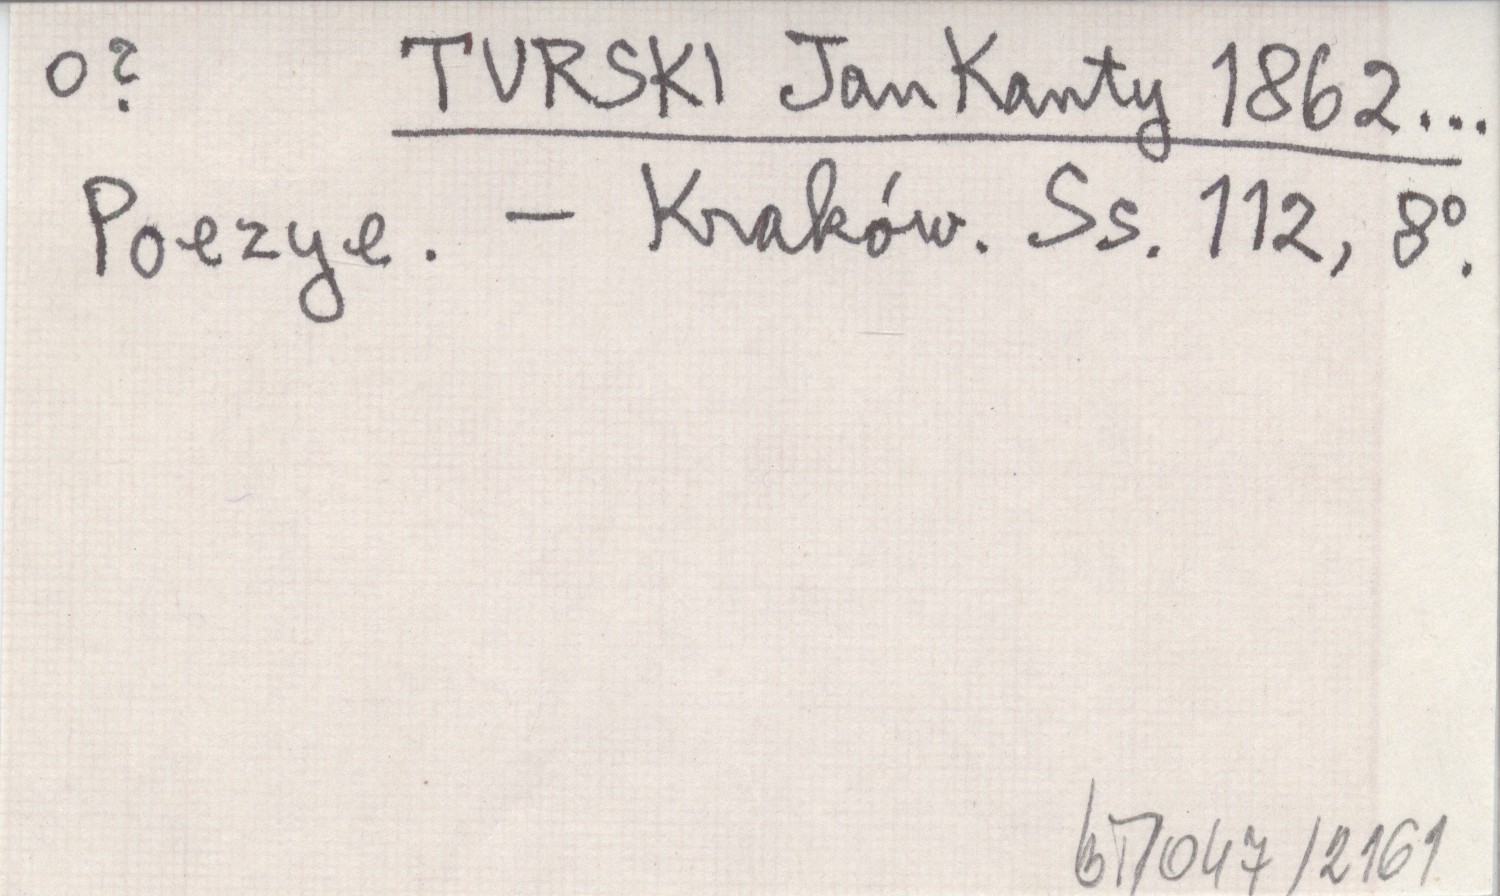 o? TURSKI Jan Kanty 1862...
Poezye. – Kraków. Ss. 112, 8º.
047/2161